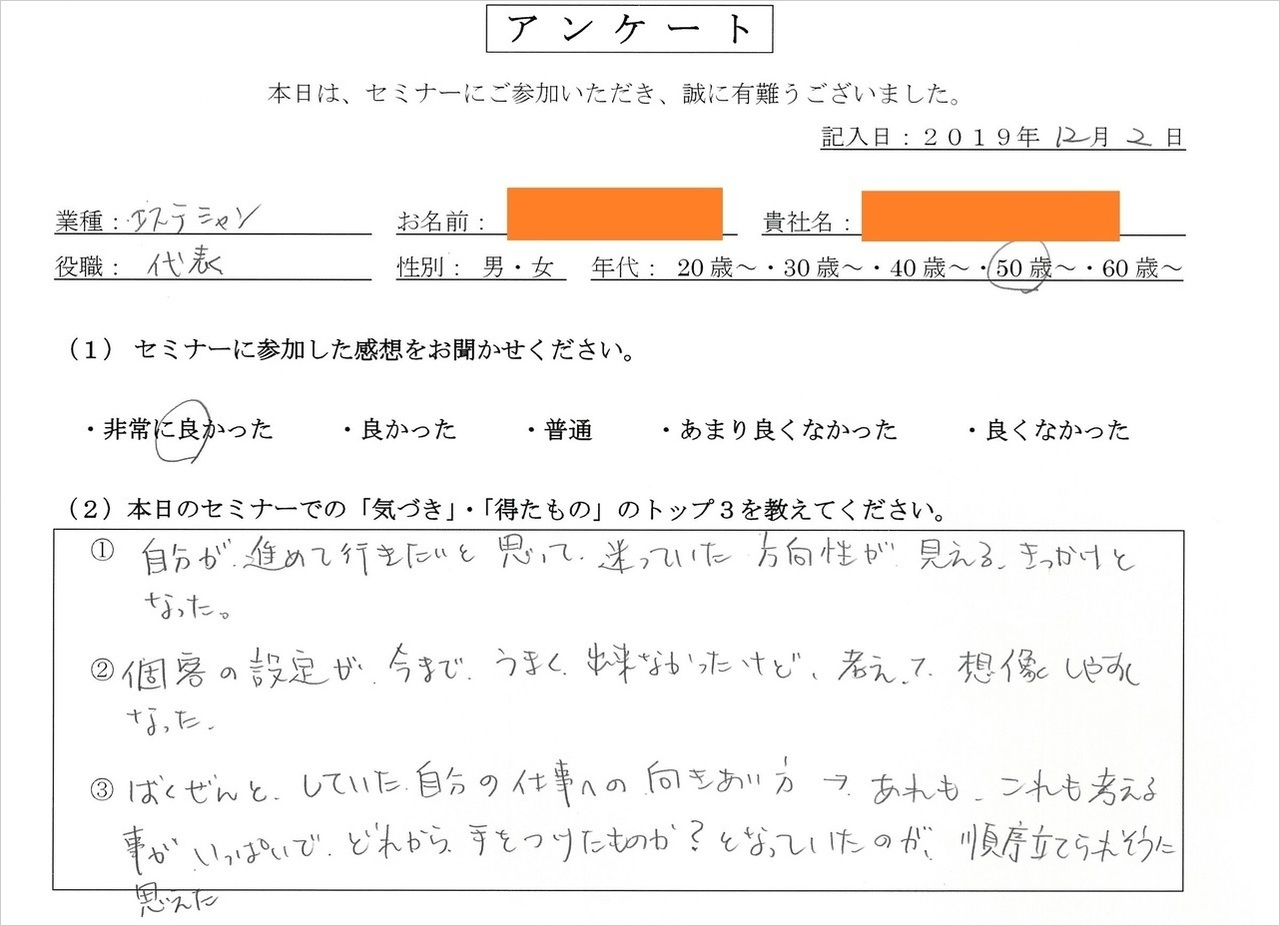 アンケート
本日は、セミナーにご参加いただき、誠に有難うございました。
記入日：２０１９年 12月 2 日
業種：エステシャン お名前： 貴社名：
役職： 代表 性別： 男・女 年代： 20歳～・30歳～・40歳～・50歳～・60歳～
（１） セミナーに参加した感想をお聞かせください。
・非常に良かった ・良かった ・普通 ・あまり良くなかった ・良くなかった
（２）本日のセミナーでの「気づき」・「得たもの」のトップ３を教えてください。
① 自分が、進めて行きたいと思って、迷っていた方向性が見える、きっかけと
なった。
② 個客の設定が、今まで、うまく出来なかったけど、考えて、想像しやすく
なった。
③ ばくぜんと、していた自分の仕事への向きあい方 → あれも、これも考える
事がいっぱいで、どれから手をつけたものか？となっていたのが、順序立てられそうに
思えた